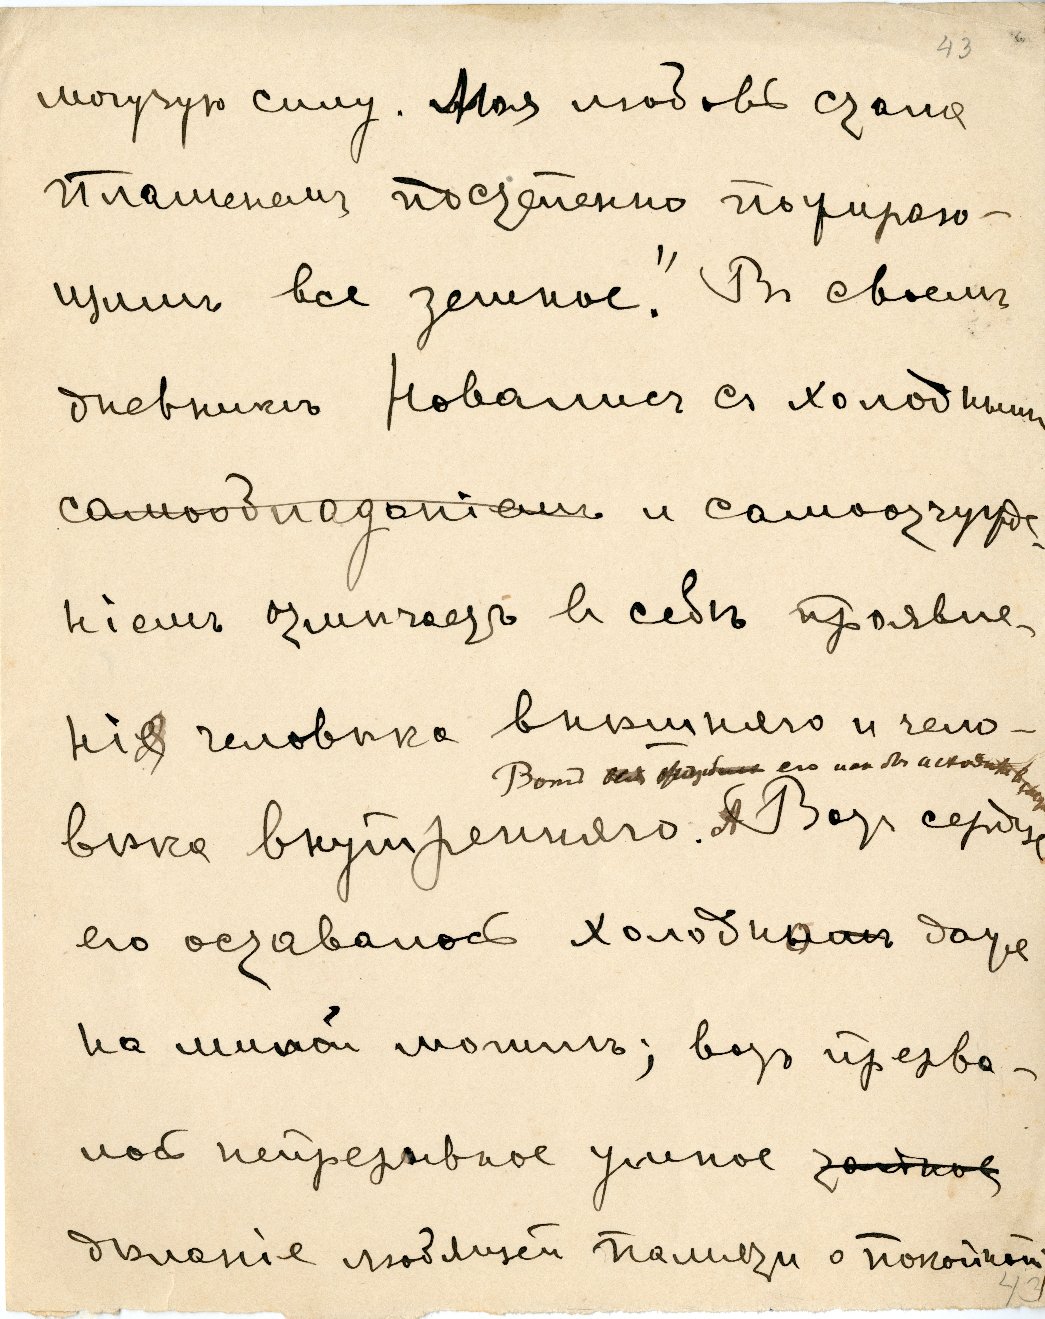 43
могучую силу. Моя любовь стала
пламенемъ постепенно пожираю-
щимъ все земное." Въ своемъ
дневникѣ Новалисъ съ холоднымъ
самообладаніемъ и самоотчужде-
ніемъ отмѣчаетъ въ себѣ проявле-
нія человѣка внѣшняго и чело-
Вотъ его
вѣка внутренняго. Вотъ сердце
его оставалось холодно даже
на милой могилѣ; вотъ прерва-
лось непрерывное умное
дѣланіе любящей памяти о покойной
43